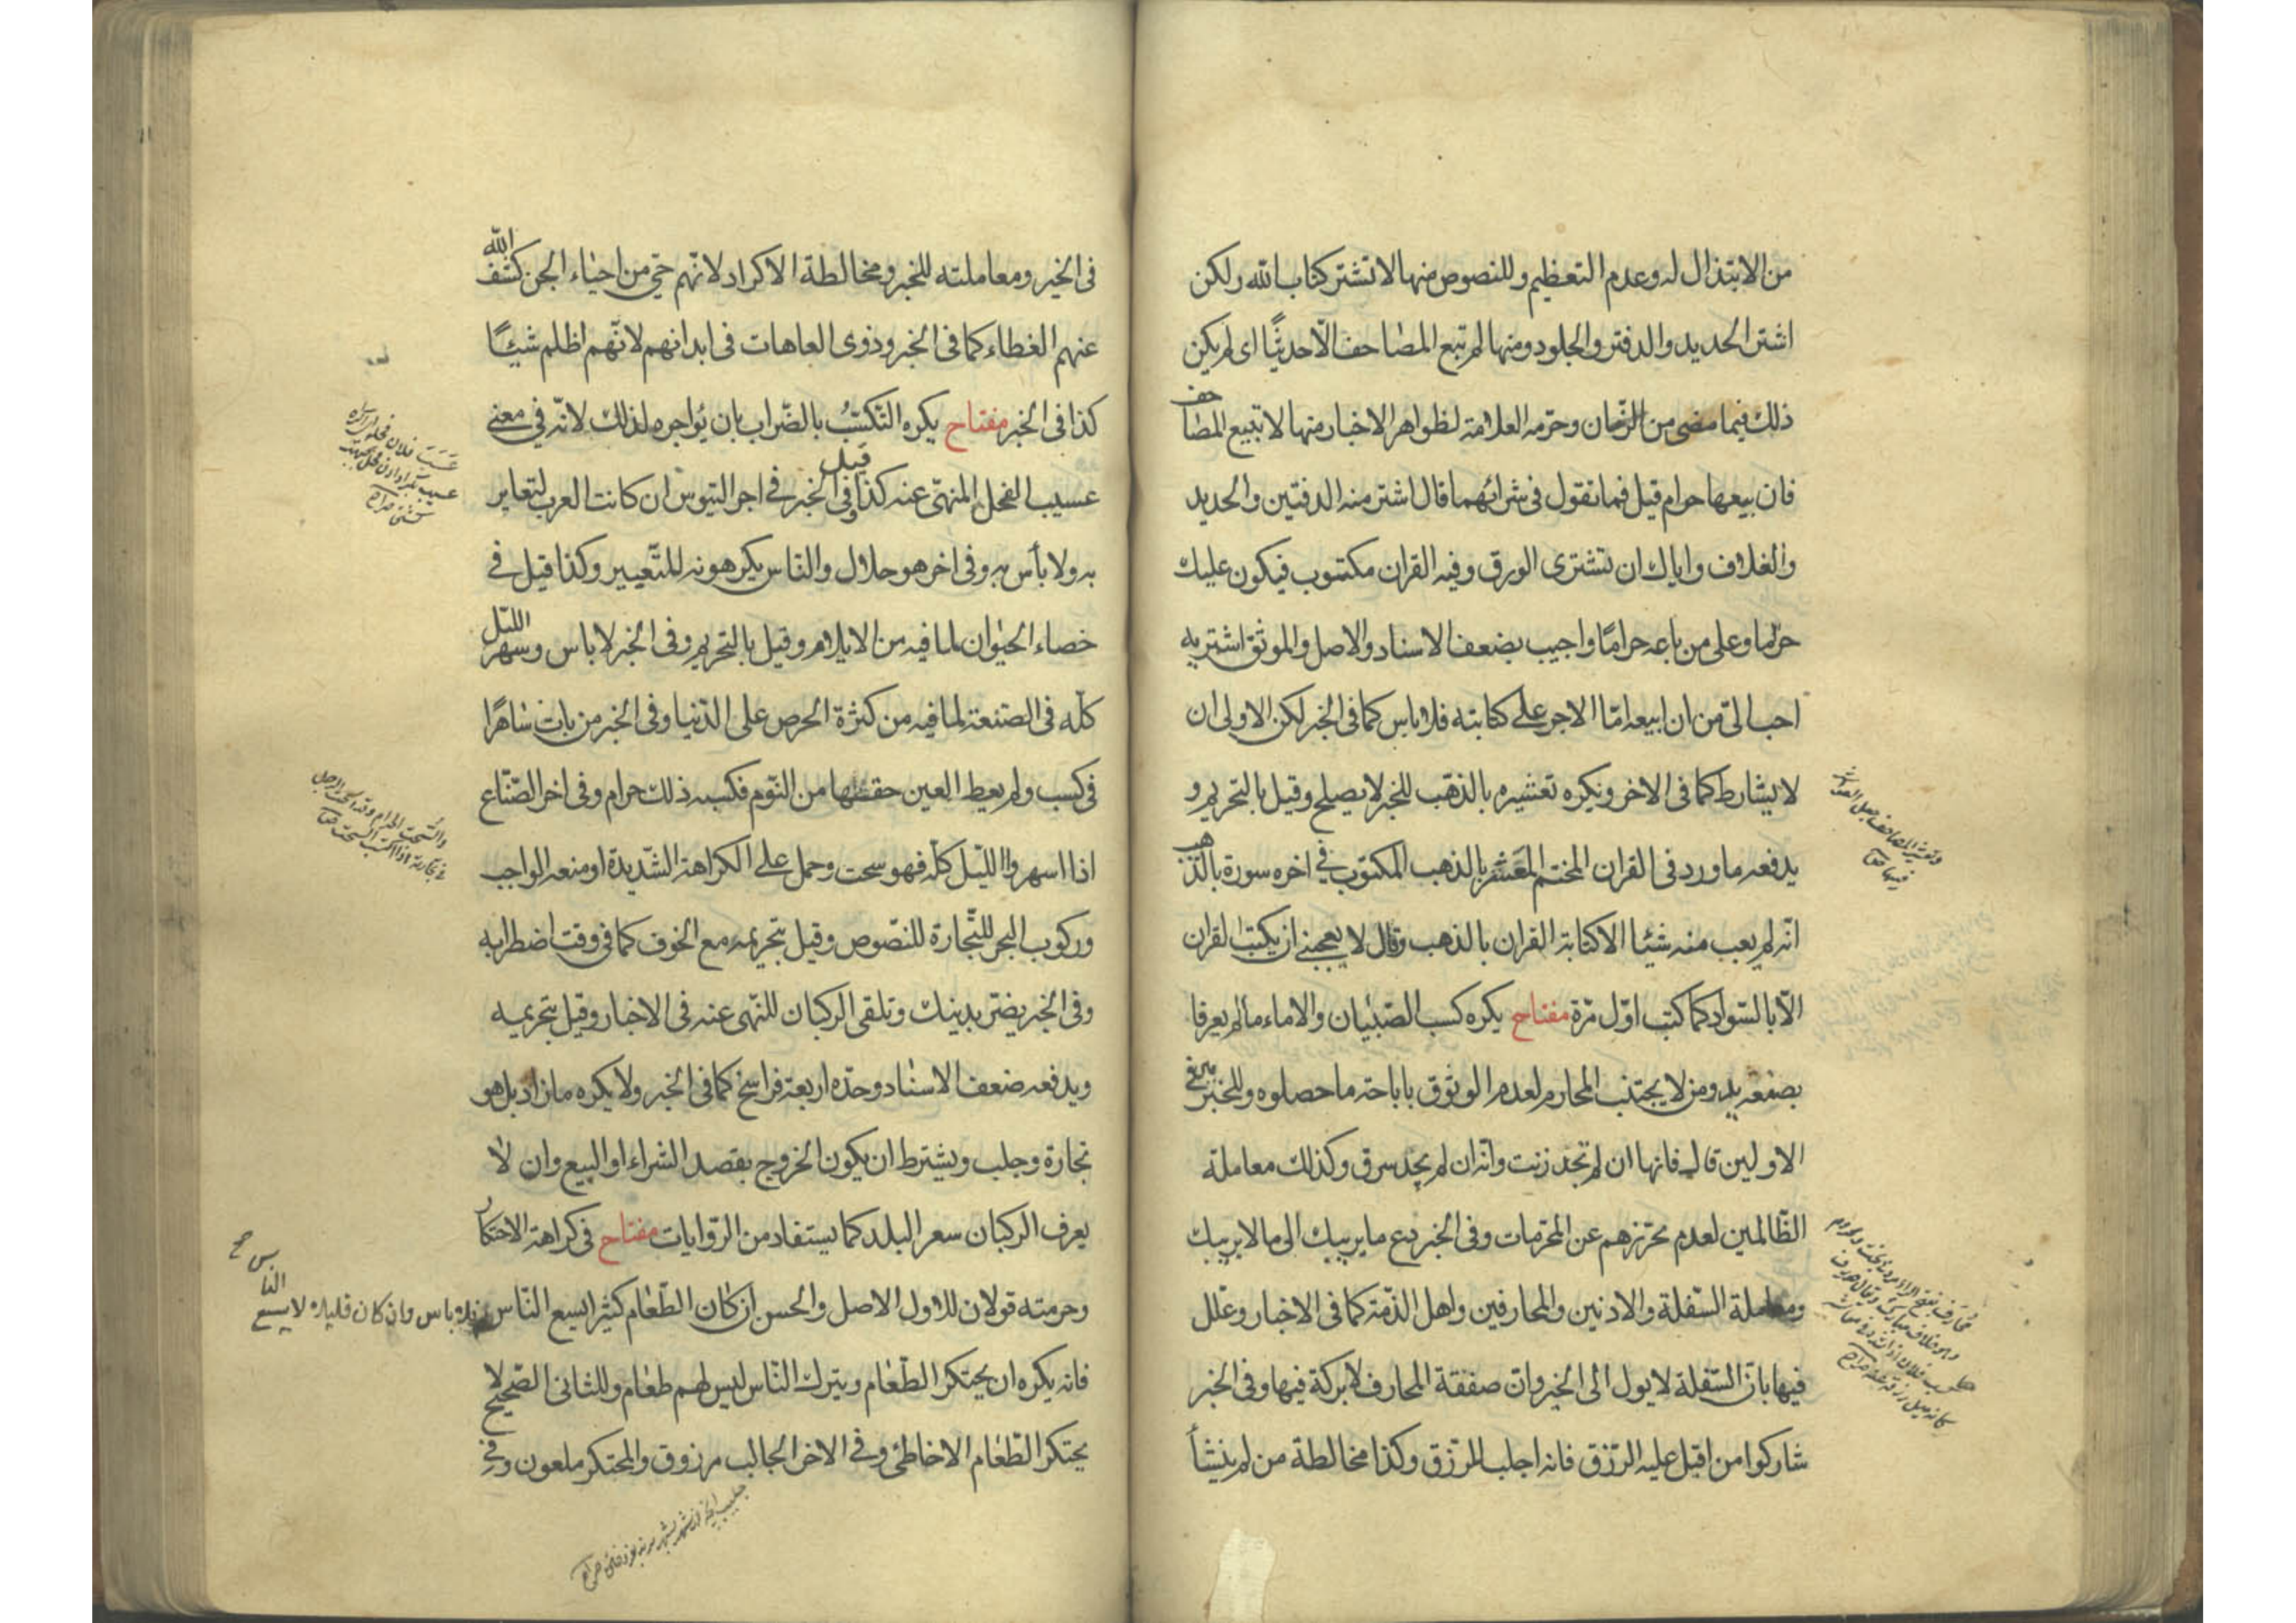 من الابتذال له وعدم التعظيم وللنصوص منها لا تشتر كتاب الله ولكن
اشتر الحديد والدفتر والجلود ومنها لم تبع المصاحف الّا حدیثًا ای لم یکن
ذلك فيما مضى من الزمان وحرّمه العلامة لظواهر الاخبار منها لا تبيع المصاحف
فان بيعها حرام قيل فما تقول فى شرائهما قال اشتر منه الدفتين والحديد
والغلاف واياك ان تشترى الورق وفيه القران مكتوب فيكون عليك
حراما وعلى من باعه حرامًا واجيب بضعف الاسناد والاصل والموثق اشتريه
احب الىّ من ان ابيعه امّا الاجر على كتابته فلا باس كما فى الخبر لكن الاولى ان
لا يشارط كما فى الاخر ويكره تعشيره بالذهب للخبر لا يصلح وقيل بالتحريم و
يدفعه ما ورد فى القران المختم المعَشر بالذهب المكتوب فى اخره سورة بالذهب
انّه لم يعب منه شيئا الا كتابة القران بالذهب وقال لا يعجبنى ان يكتب القران
الّا بالسّواد كما كتب اوّل مرّة مفتاح يكره كسب الصّبيان والاماء ما لم يعرفا
بصنعة يد ومن لا يجتنب المحارم لعدم الوثوق باباحة ما حصلوه وللخبرين فى
الاولين قال فانها ان لم تجد زنت وانّه ان لم يجد سرق وكذلك معاملة
الظّالمين لعدم تحرّزهم عن المحرّمات وفى الخبر دع ما يريبك الى ما لا يريبك
ومعاملة السّفلة والادنين والمحارفين واهل الذّمّة كما فى الاخبار وعلّل
فيها بانّ السّفلة لا يول الى الخير وانّ صفقة المحارف لا بركة فيها وفى الخبر
شاركوا من اقبل عليه الرّزق فانه اجلب للرّزق وكذا مخالطة من لم ينشأ
فى الخير ومعاملته للخبر ومخالطة الاكراد لانّهم حىّ من احياء الجن كشف الله
عنهم الغطاء كما فى الخبر وذوى العاهات فى ابدانهم لانّهم اظلم شيئًا
كذا فى الخبر مفتاح يكره التكسّب بالضّراب بان يُواجره لذلك لانّه فى معنى
عسيب الفحل المنهىّ عنه كذا قيل وفى الخبر فى اجر التيوس ان كانت العرب لتعاير
به ولا بأس به وفى اخر هو حلال والنّاس يكرهونه للتّعيير وكذا قيل فى
خصاء الحيوان لما فيه من الايلام وقيل بالتحريم وفى الخبر لا باس وسهر اللیل
كلّه فى الصّنعة لما فيه من كثرة الحرص على الدّنيا وفى الخبر من بات ساهرًا
فى كسب ولم يعط العين حقّها من النّوم فكسبه ذلك حرام وفى اخر الصّنّاع
اذا اسهروا اللّيل كلّه فهو سحت وحمل على الكراهة الشّديدة او منعه الواجب
وركوب البحر للتّجارة للنّصوص وقيل بتحريمه مع الخوف كما فى وقت اضطرابه
وفى الخبر يضرّ بدينك وتلقى الركبان للنّهى عنه فى الاخبار وقيل بتحريمه
ويدفعه ضعف الاسناد وحدّه اربعة فراسخ كما فى الخبر ولا يكره ما زاد بل هو
تجارة وجلب ويشترط ان يكون الخروج بقصد الشراء او البيع وان لا
يعرف الركبان سعر البلد كما يستفاد من الرّوايات مفتاح فى كراهة الاحتكار
وحرمته قولان للاول الاصل والحسن ان كان الطّعام كثيرا يسع النّاس فلا باس وان كان قليلا لا يسع الناس
فانه يكره ان يحتكر الطّعام ويترك النّاس ليس لهم طعام وللثانى الصّحيح لا
يحتكر الطّعام الا خاطئ وفى الاخر الجالب مرزوق والمحتكر ملعون وفى